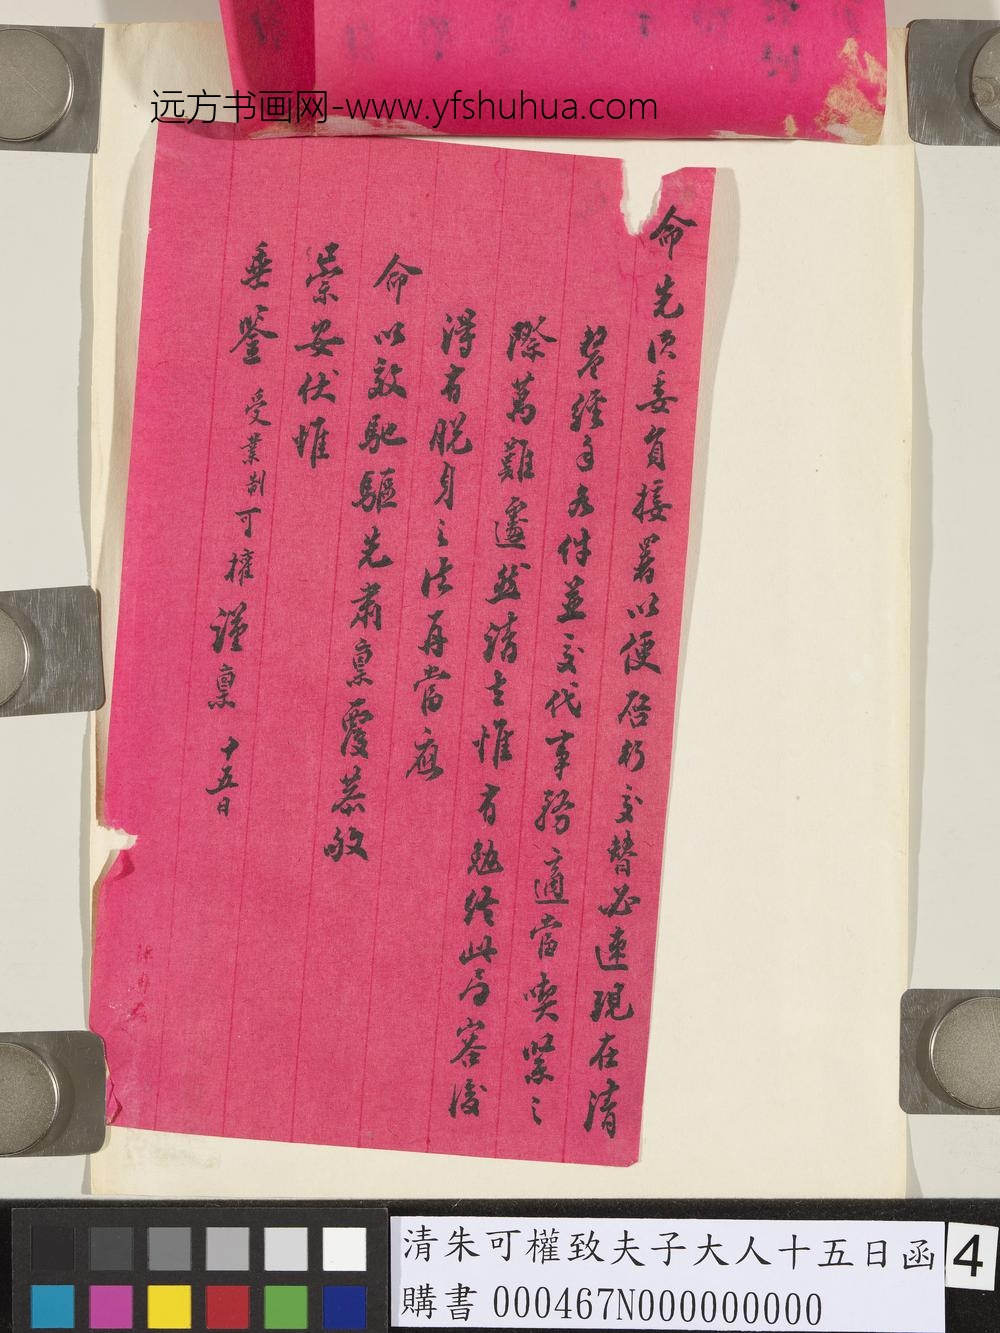 远方书画网-www.yfshuhua.com
命先須委員接署以便啓行交替必速現在清
釐經手各件並交代事務適當喫緊之
際萬難遽然請去惟有勉終此局容後
得有脫身之法再當應
命以效馳驅先肅稟覆恭敬
崇安伏惟
垂鑒 受業制可權謹稟 十五日
清朱可權致夫子大人十五日函
購書 000467N000000000
4